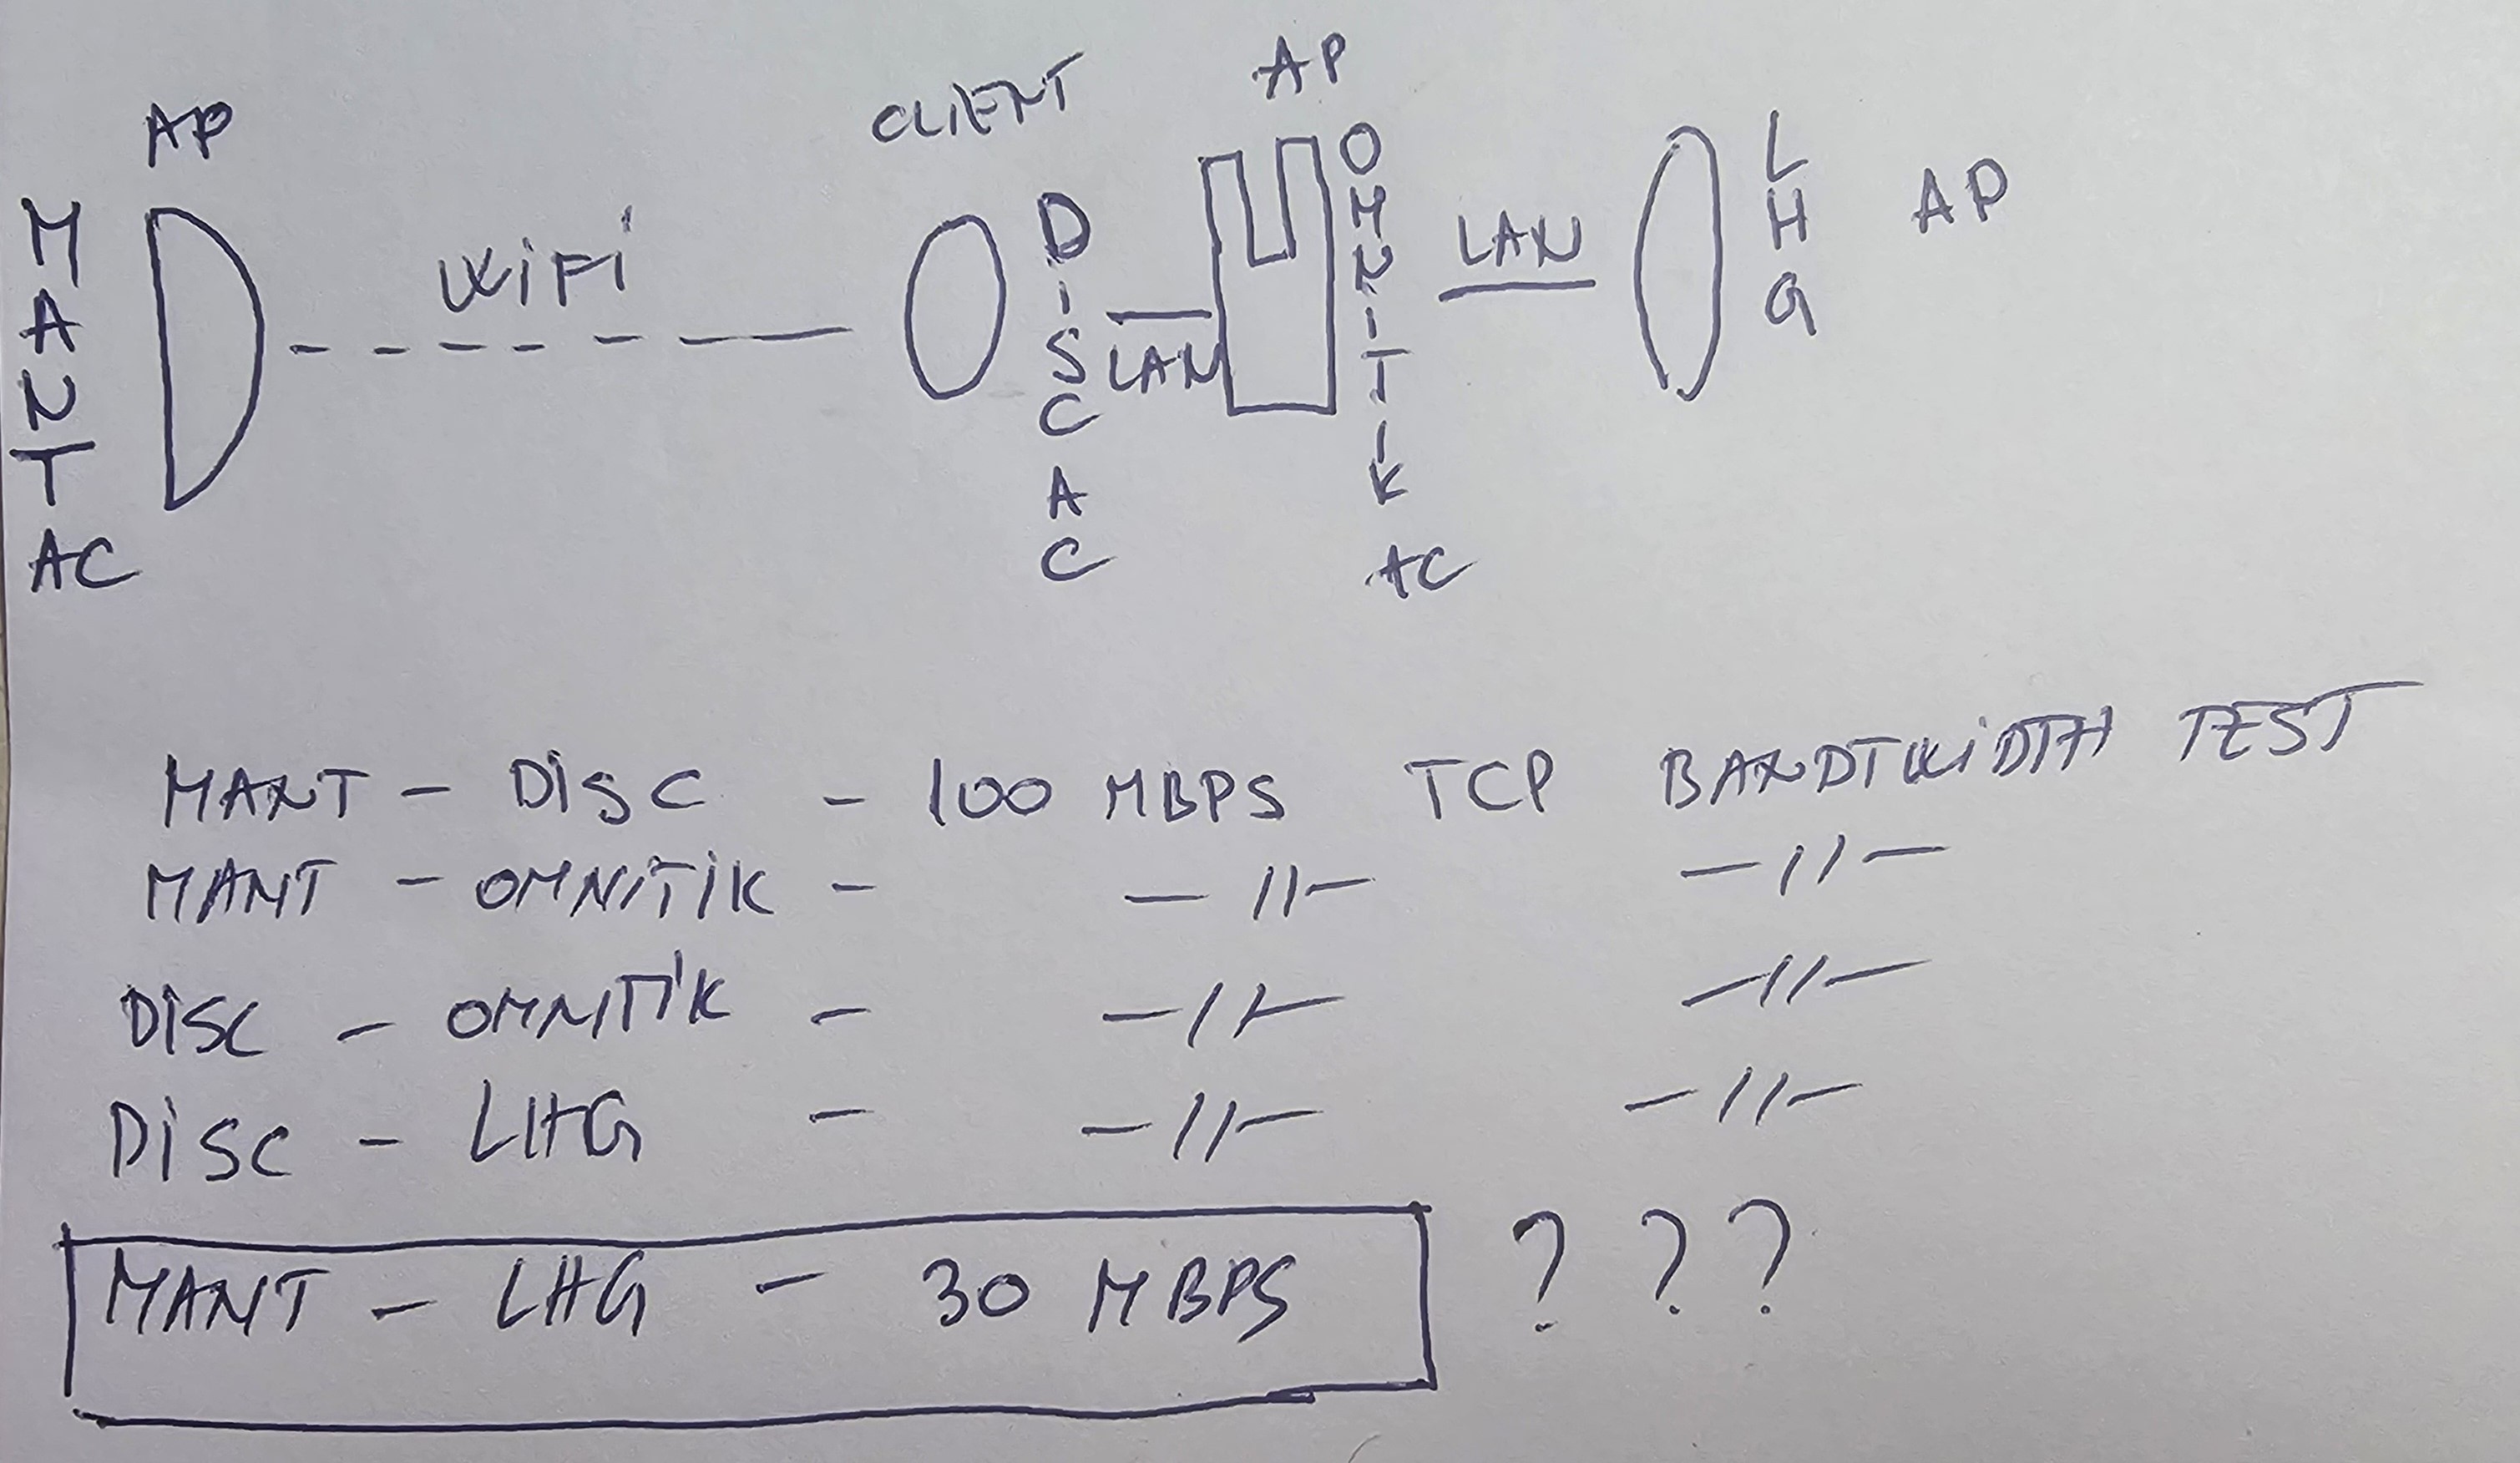 AP
CLIENT
AP
MANT AC
WiFi
DiSC AC
LAN
OMNITIK AC
LAN
LHG
AP
MANT - DiSC - 100 MBPS TCP BANDTWiDTH TEST
MANT - OMNITIK - -//- -//-
DISC - OMNITIK - -//- -//-
DiSC - LHG - -//- -//-
MANT - LHG - 30 MBPS ? ? ?